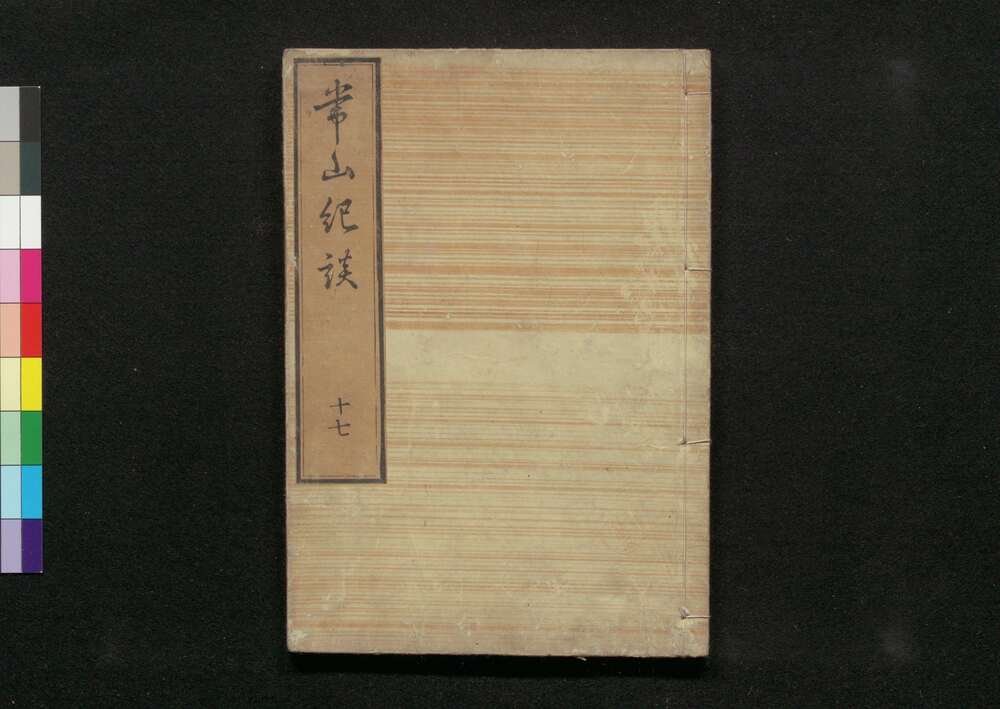 常山紀談
十七